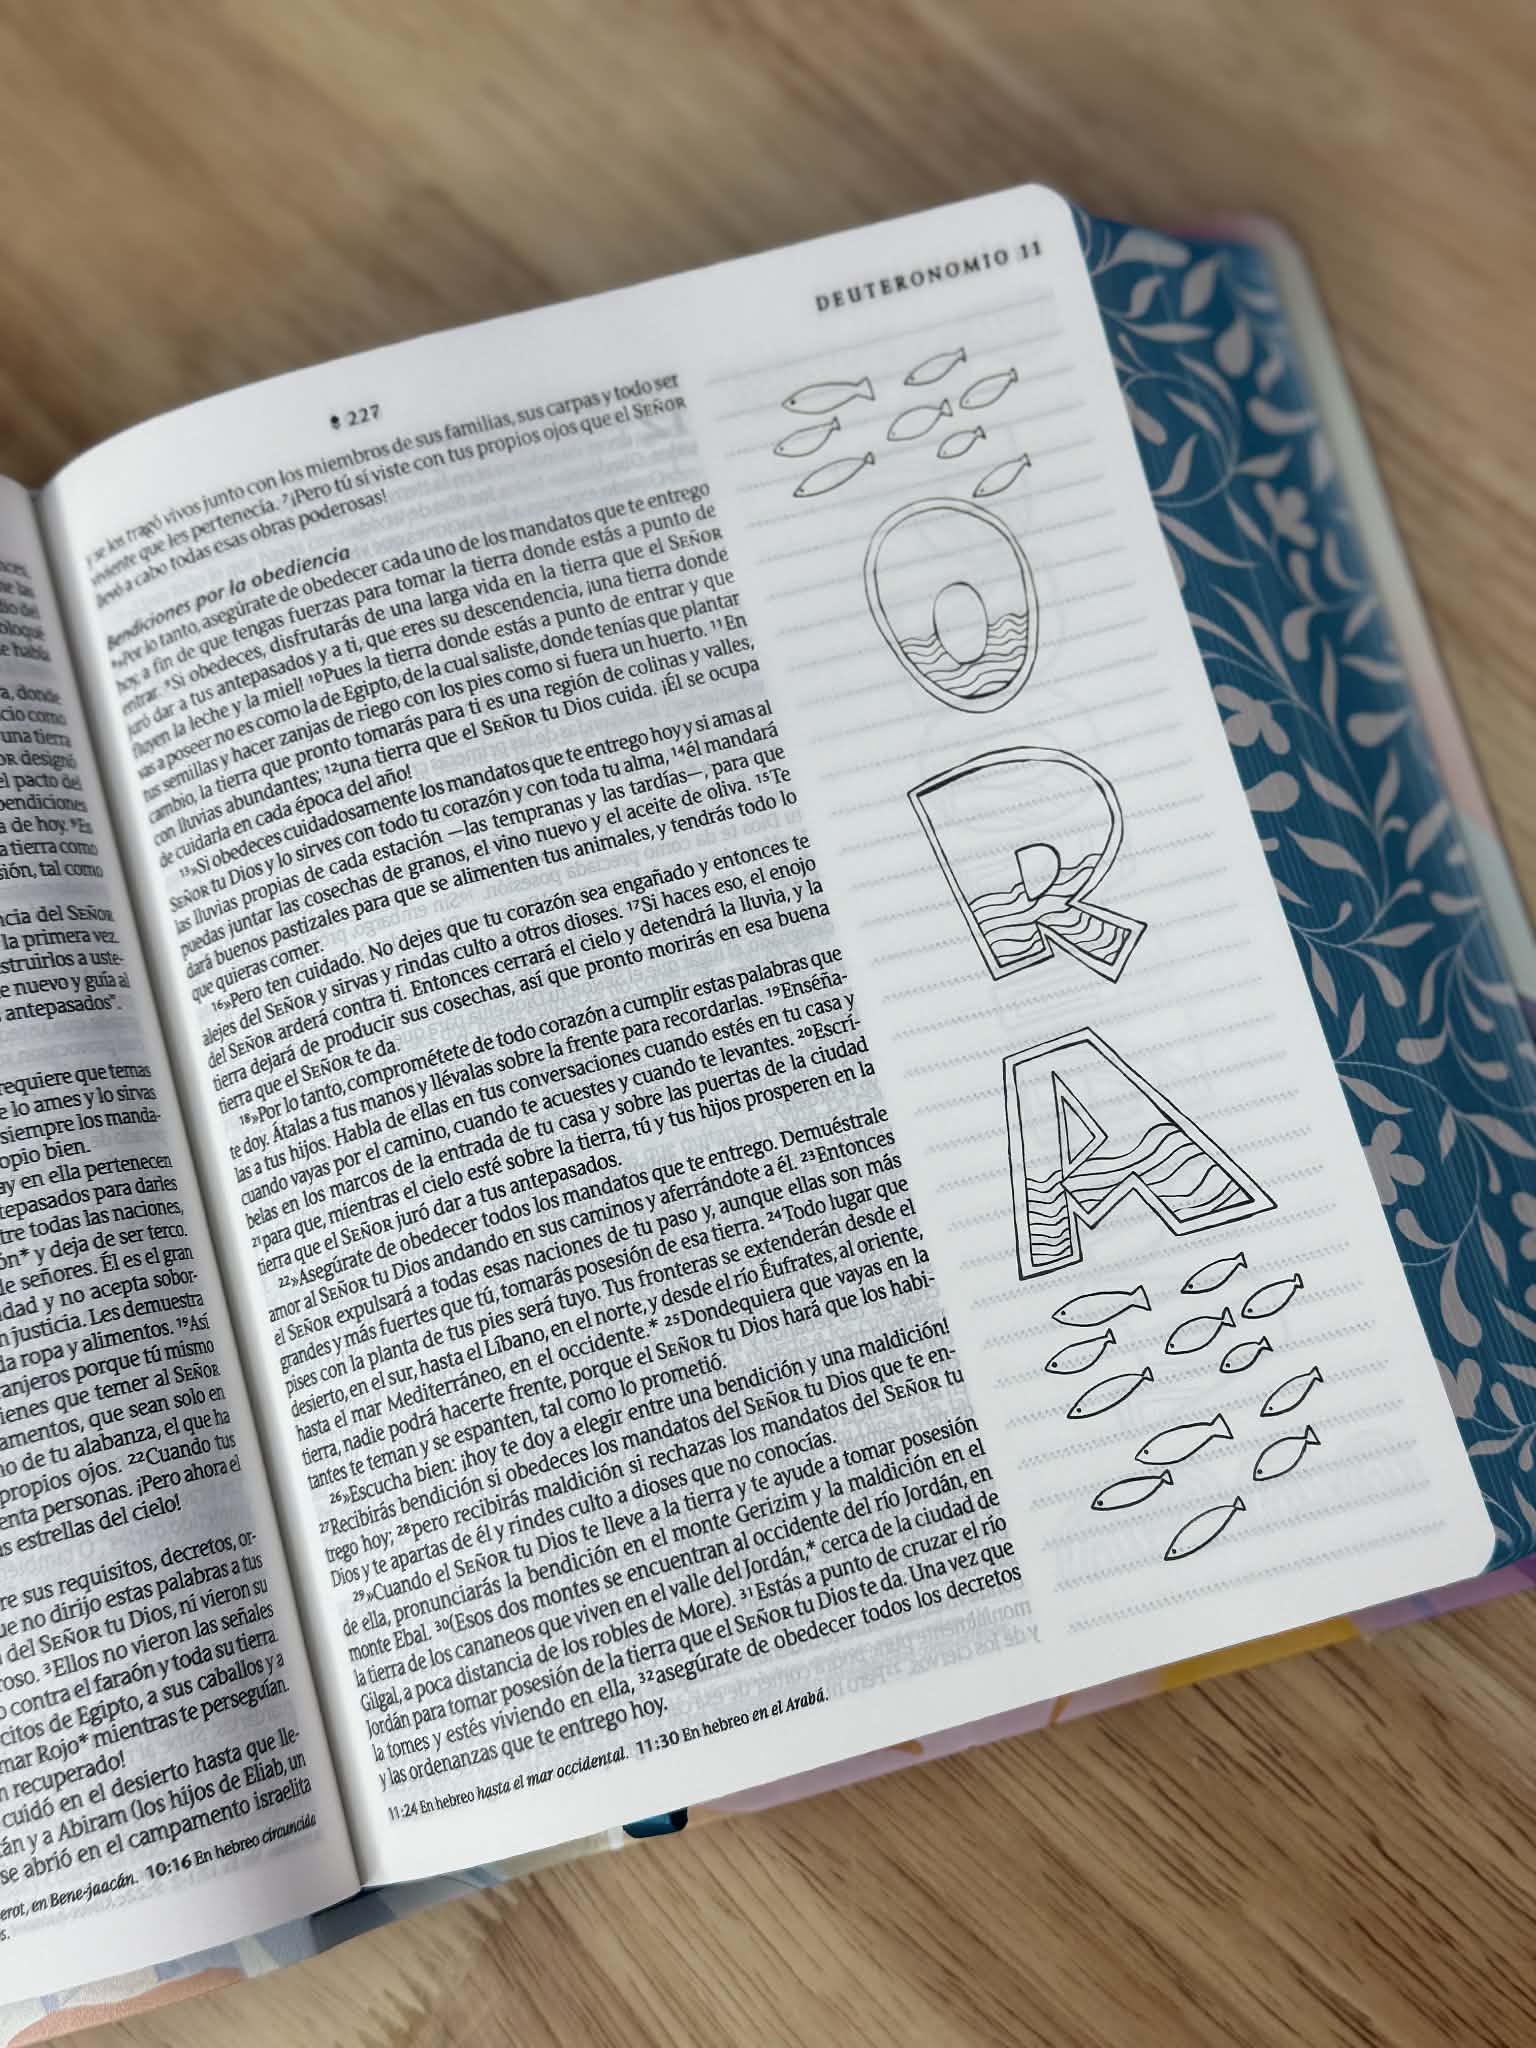 ia, donde
cio como
una tierra
OR designó
el pacto del
bendiciones
a de hoy. ⁹Es
a tierra como
sión, tal como
ncia del SEÑOR
la primera vez.
struirlos a uste-
e nuevo y guía al
antepasados".
requiere que temas
e lo ames y lo sirvas
siempre los manda-
opio bien.
ay en ella pertenecen
tepasados para darles
tre todas las naciones,
ón* y deja de ser terco.
de señores. Él es el gran
idad y no acepta sobor-
n justicia. Les demuestra
da ropa y alimentos. ¹⁹Así
ranjeros porque tú mismo
ienes que temer al SEÑOR
amentos, que sean solo en
no de tu alabanza, el que ha
propios ojos. ²²Cuando tus
enta personas. ¡Pero ahora el
as estrellas del cielo!
re sus requisitos, decretos, or-
ue no dirijo estas palabras a tus
del SEÑOR tu Dios, ni vieron su
roso. ³Ellos no vieron las señales
o contra el faraón y toda su tierra.
citos de Egipto, a sus caballos y a
mar Rojo* mientras te perseguían.
n recuperado!
cuidó en el desierto hasta que lle-
tán y a Abiram (los hijos de Eliab, un
se abrió en el campamento israelita
erot, en Bene-jaacán. 10:16 En hebreo circuncida
s.
227
DEUTERONOMIO 11
y se los tragó vivos junto con los miembros de sus familias, sus carpas y todo ser
viviente que les pertenecía. ⁷¡Pero tú sí viste con tus propios ojos que el SEÑOR
llevó a cabo todas esas obras poderosas!
Bendiciones por la obediencia
⁸»Por lo tanto, asegúrate de obedecer cada uno de los mandatos que te entrego
hoy, a fin de que tengas fuerzas para tomar la tierra donde estás a punto de
entrar. ⁹Si obedeces, disfrutarás de una larga vida en la tierra que el SEÑOR
juró dar a tus antepasados y a ti, que eres su descendencia, ¡una tierra donde
fluyen la leche y la miel! ¹⁰Pues la tierra donde estás a punto de entrar y que
vas a poseer no es como la de Egipto, de la cual saliste, donde tenías que plantar
tus semillas y hacer zanjas de riego con los pies como si fuera un huerto. ¹¹En
cambio, la tierra que pronto tomarás para ti es una región de colinas y valles,
con lluvias abundantes; ¹²una tierra que el SEÑOR tu Dios cuida. ¡Él se ocupa
de cuidarla en cada época del año!
¹³»Si obedeces cuidadosamente los mandatos que te entrego hoy y si amas al
SEÑOR tu Dios y lo sirves con todo tu corazón y con toda tu alma, ¹⁴él mandará
las lluvias propias de cada estación —las tempranas y las tardías—, para que
puedas juntar las cosechas de granos, el vino nuevo y el aceite de oliva. ¹⁵Te
dará buenos pastizales para que se alimenten tus animales, y tendrás todo lo
que quieras comer.
¹⁶»Pero ten cuidado. No dejes que tu corazón sea engañado y entonces te
alejes del SEÑOR y sirvas y rindas culto a otros dioses. ¹⁷Si haces eso, el enojo
del SEÑOR arderá contra ti. Entonces cerrará el cielo y detendrá la lluvia, y la
tierra dejará de producir sus cosechas, así que pronto morirás en esa buena
tierra que el SEÑOR te da.
¹⁸»Por lo tanto, comprométete de todo corazón a cumplir estas palabras que
te doy. Átalas a tus manos y llévalas sobre la frente para recordarlas. ¹⁹Enséña-
las a tus hijos. Habla de ellas en tus conversaciones cuando estés en tu casa y
cuando vayas por el camino, cuando te acuestes y cuando te levantes. ²⁰Escrí-
belas en los marcos de la entrada de tu casa y sobre las puertas de la ciudad
²¹para que, mientras el cielo esté sobre la tierra, tú y tus hijos prosperen en la
tierra que el SEÑOR juró dar a tus antepasados.
²²»Asegúrate de obedecer todos los mandatos que te entrego. Demuéstrale
amor al SEÑOR tu Dios andando en sus caminos y aferrándote a él. ²³Entonces
el SEÑOR expulsará a todas esas naciones de tu paso y, aunque ellas son más
grandes y más fuertes que tú, tomarás posesión de esa tierra. ²⁴Todo lugar que
pises con la planta de tus pies será tuyo. Tus fronteras se extenderán desde el
desierto, en el sur, hasta el Líbano, en el norte, y desde el río Éufrates, al oriente,
hasta el mar Mediterráneo, en el occidente.* ²⁵Dondequiera que vayas en la
tierra, nadie podrá hacerte frente, porque el SEÑOR tu Dios hará que los habi-
tantes te teman y se espanten, tal como lo prometió.
²⁶»Escucha bien: ¡hoy te doy a elegir entre una bendición y una maldición!
²⁷Recibirás bendición si obedeces los mandatos del SEÑOR tu Dios que te en-
trego hoy; ²⁸pero recibirás maldición si rechazas los mandatos del SEÑOR tu
Dios y te apartas de él y rindes culto a dioses que no conocías.
²⁹»Cuando el SEÑOR tu Dios te lleve a la tierra y te ayude a tomar posesión
de ella, pronunciarás la bendición en el monte Gerizim y la maldición en el
monte Ebal. ³⁰(Esos dos montes se encuentran al occidente del río Jordán, en
la tierra de los cananeos que viven en el valle del Jordán,* cerca de la ciudad de
Gilgal, a poca distancia de los robles de More). ³¹Estás a punto de cruzar el río
Jordán para tomar posesión de la tierra que el SEÑOR tu Dios te da. Una vez que
la tomes y estés viviendo en ella, ³²asegúrate de obedecer todos los decretos
y las ordenanzas que te entrego hoy.
11:24 En hebreo hasta el mar occidental. 11:30 En hebreo en el Arabá.
O
R
A